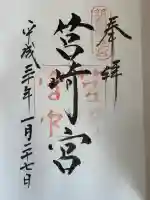 奉拝
筥崎宮
平成三年一月二十七日